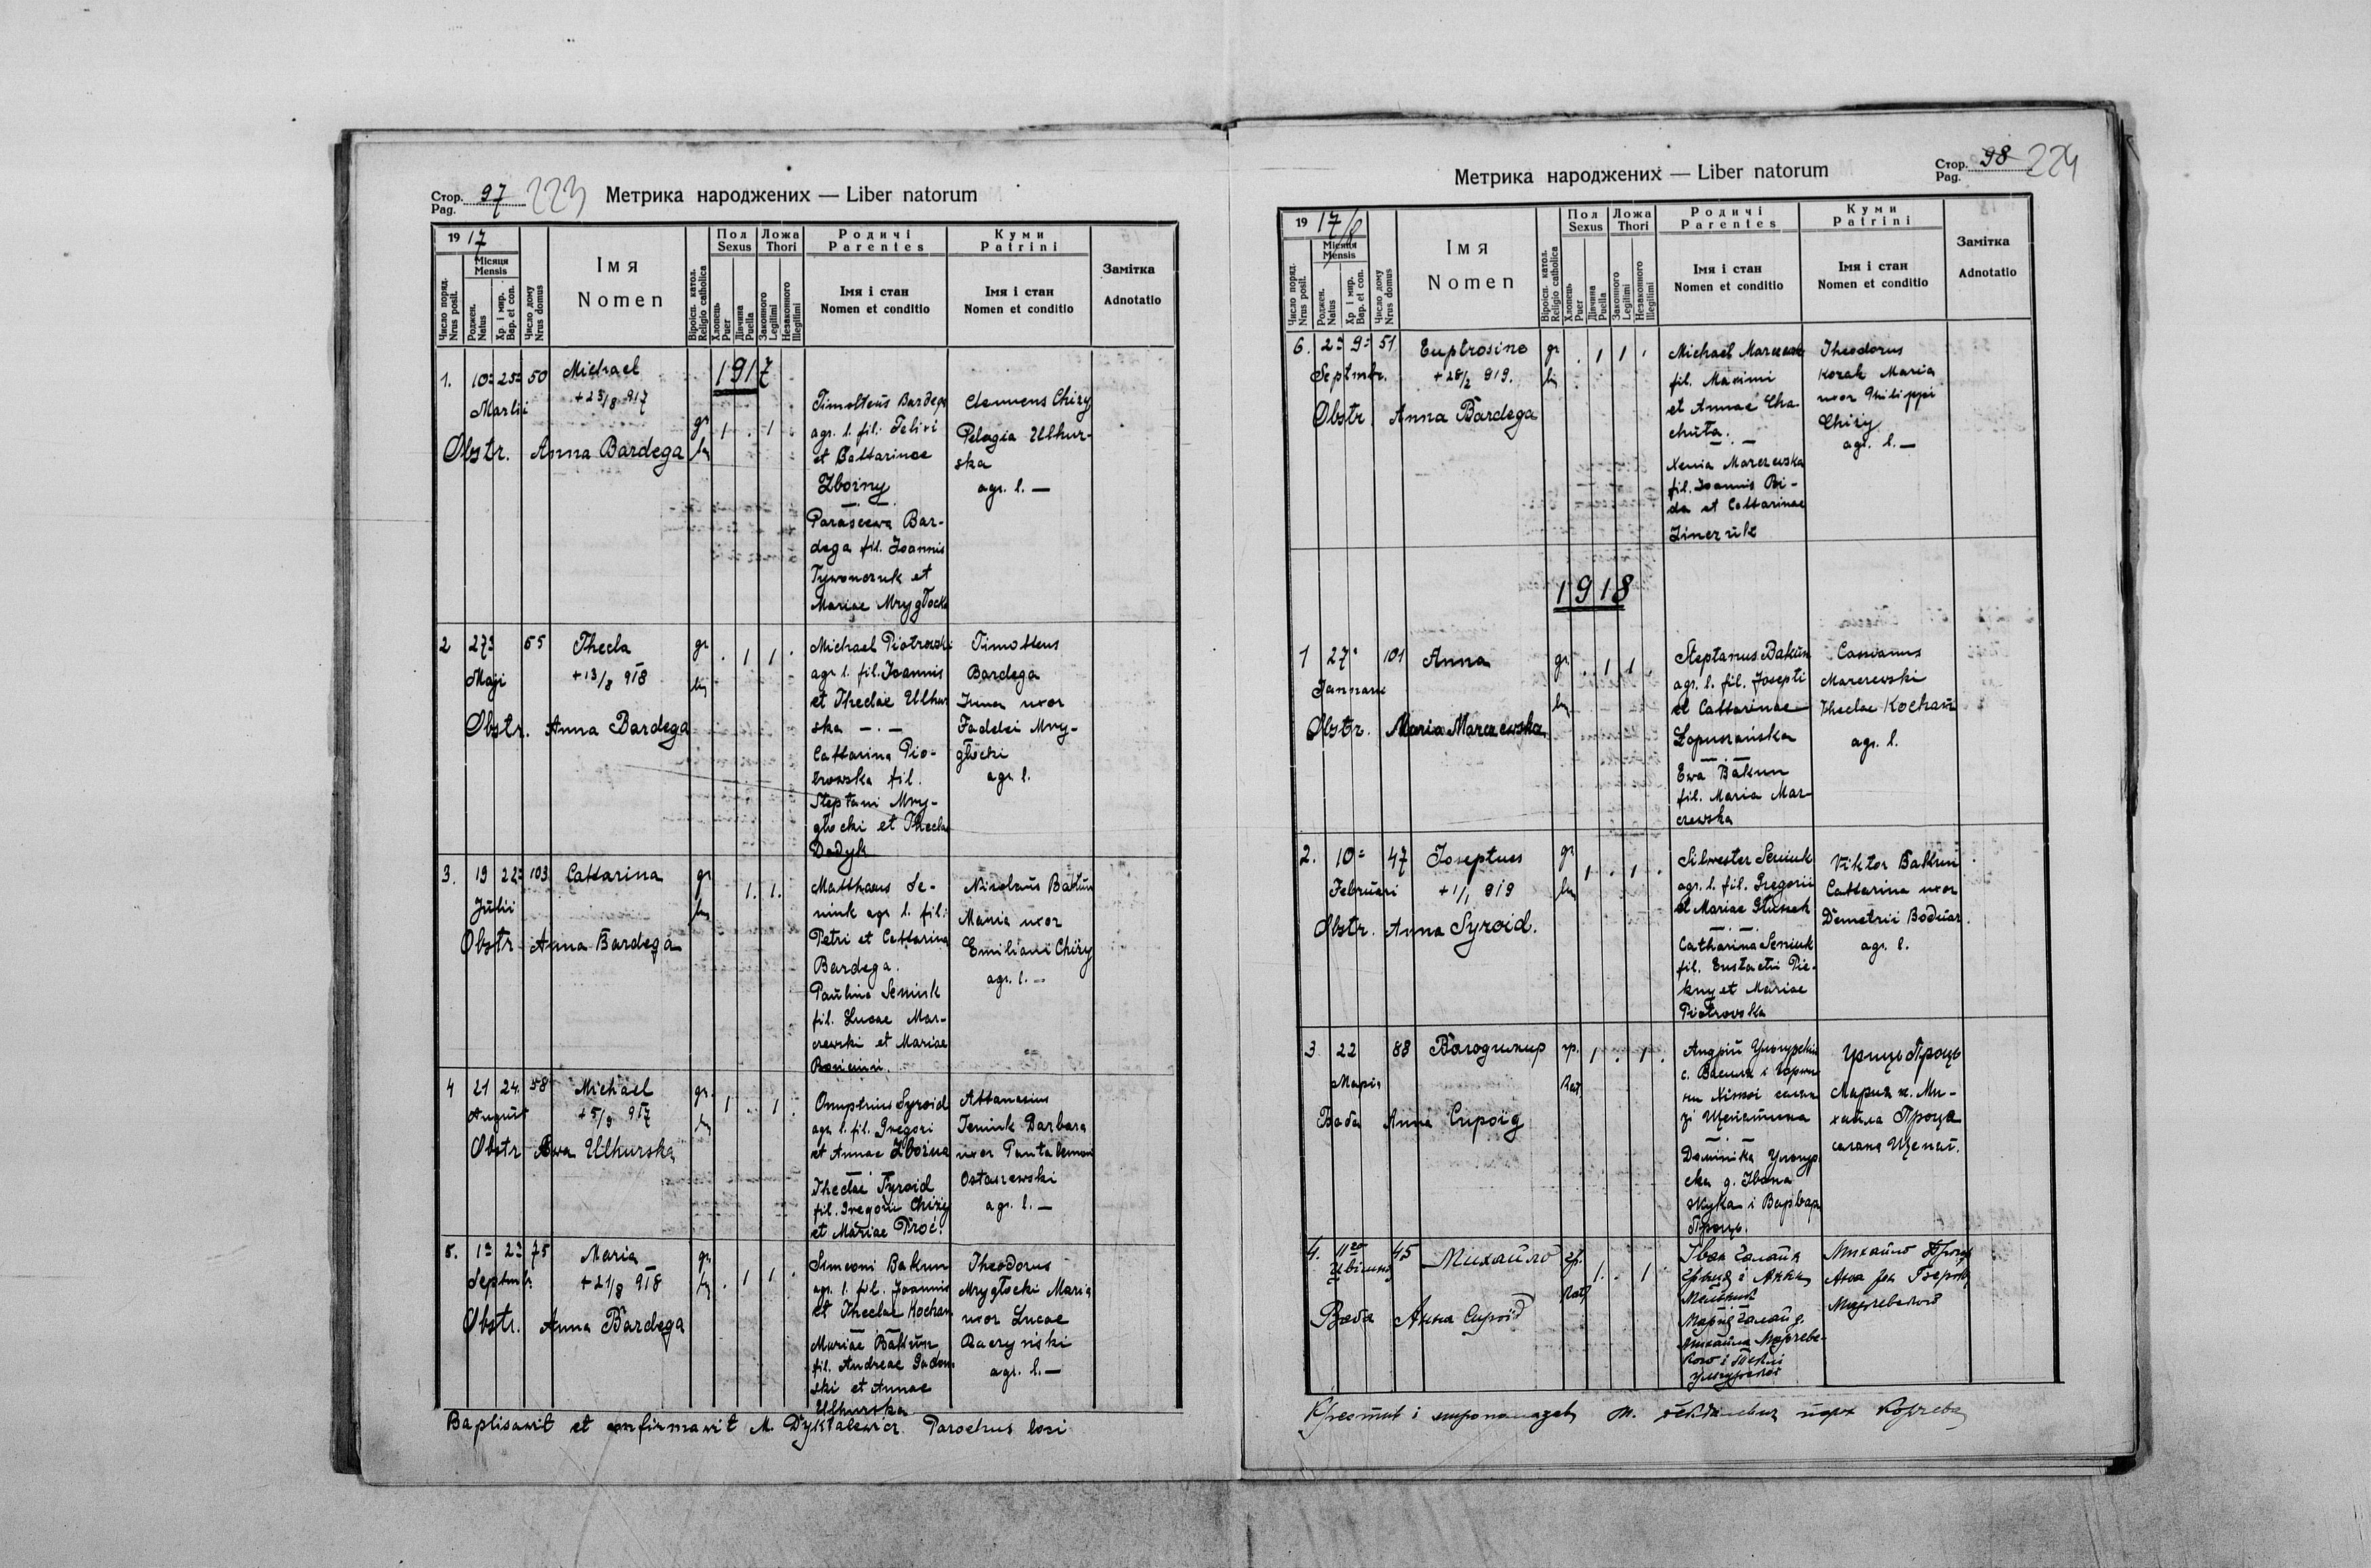 Стор. 97 223 Метрика народжених — Liber natorum
Pag.
1917
Місяця
Mensis
Число поряд.
Nrus posit.
Роджен.
Natus
Хр. і мир.
Bap. et con.
Число дому
Nrus domus
Імя
Nomen
Віроісп. катол.
Religio catholica
Пол
Sexus
Хлопець
Puer
Дівчина
Puella
Ложа
Thori
Законного
Legitimi
Незаконного
Illegitimi
Родичі
Parentes
Імя і стан
Nomen et conditio
Куми
Patrini
Імя і стан
Nomen et conditio
Замітка
Adnotatio
1917
1. 10 25 50 Michael
+ 23/8 917
Martii
Obstr. Anna Bardega
gr 1 . 1 .
Timotheus Bardega
agr. l. fil.
et Catharinae
Zboiny
Parascewa Bar-
dega fil. Joannis
Tywonczuk et
Mariae Mrygłocka
Clemens Chizy
Pelagia Ulhur-
ska
agr. l. —
2 27 55 Thecla
+ 13/8 918
Maji
Obstr. Anna Bardega
gr . 1 1 .
Michael Piotrowski
agr. l. fil. Joannis
et Theclae Ulhur
ska — . —
Catharina Pio-
trowska fil.
Stephani Mry-
głocki et Theclae
Dadyk
Timotheus
Bardega
uxor
Fadei Mry-
głocki
agr. l.
3. 19 22 103 Catharina
Julii
Obstr. Anna Bardega
gr . 1. 1.
Matthaus Se-
niuk agr. l. fil.
Petri et Catharina
Bardega.
Paulina Seniuk
fil. Lucae Mar-
czewski et Mariae
Nicolaus Bakun
Maria uxor
Emiliani Chizy
agr. l. —
4 21 24. 58 Michael
+ 5/9 917
August
Obstr. Ewa Ulhurska
gr. 1 . . 1 .
Onuphrius Syroid
agr. l. fil. Gregori
et Annae Zboina
Theclae Syroid
fil. Gregorii Chizy
et Mariae Proć.
Athanasius
Seniuk Barbara
uxor Pantalemon
Ostaszewski
agr. l. —
5. 1 2 75 Maria
+ 21/8 918
Septmbr
Obstr. Anna Bardega
gr . 1 1 .
Simeoni Bakun
agr. l. fil. Joannis
et Theclae Kochan
Mariae Bakun
fil. Andreae Gadom-
ski et Annae
Ulhurska
Theodorus
Mrygłocki Maria
uxor Lucae
Baczynski
agr. l. —
Baptisavit et confirmavit M. Dyktalewicz Parochus loci
Метрика народжених — Liber natorum
Стор. 98 224
Pag.
1917/8
Місяця
Mensis
Число поряд.
Nrus posit.
Роджен.
Natus
Хр і мир.
Bap. et con.
Число дому
Nrus domus
Імя
Nomen
Віроісп. катол.
Religio catholica
Пол
Sexus
Хлопець
Puer
Дівчина
Puella
Ложа
Thori
Законного
Legitimi
Незаконного
Illegitimi
Родичі
Parentes
Імя і стан
Nomen et conditio
Куми
Patrini
Імя і стан
Nomen et conditio
Замітка
Adnotatio
6. 2 9 51 Euphrosine
+ 28/2 919.
Septmbr.
Obstr. Anna Bardega
gr . 1 1 .
Michael Marczewski
fil. Maximi
et Annae Cha-
chuta. —
Xenia Marczewska
fil. Joannis Bi-
da et Catharinae
Zinczuk
Theodorus
Kozak Maria
uxor Philippi
Chizy
agr. l. —
1918
1 27 101 Anna
Januarii
Obstr. Maria Marczewska
gr . 1 1 .
Stephanus Bakun
agr. l. fil. Josephi
et Catharinae
Łopuszańska
Ewa Bakun
fil. Maria Mar-
czewska
Cassianus
Marczewski
Theclae Kochan
agr. l.
2. 10 47 Josephus
+ 1/1 919
Februari
Obstr. Anna Syroid.
gr 1 . 1 .
Silvester Seniuk
agr. l. fil. Gregorii
et Mariae
Catharina Seniuk
fil. Eustachii Pie-
kny et Mariae
Piotrovska
Viktor Bakun
Catharina uxor
Demetrii Bodnar
agr. l.
3 22 88 Володимир
Марта
Баба Анна Сироїд
гр. 1 . 1 .
кат
Андрій Улгурский
с. Василя і
зі Щепятина
Домініка Улгур
ска д. Івана
Жука і Варвара
Проць.
Гриць Проць
Мария ж. Ми-
хайла Проця
селяне Щепят.
4. 11 45 Михайло
Цвітня
Баба Анна Сироїд
гр. 1. . 1 .
кат
Іван
Гриця і Анни
Михайло Проць
Анна